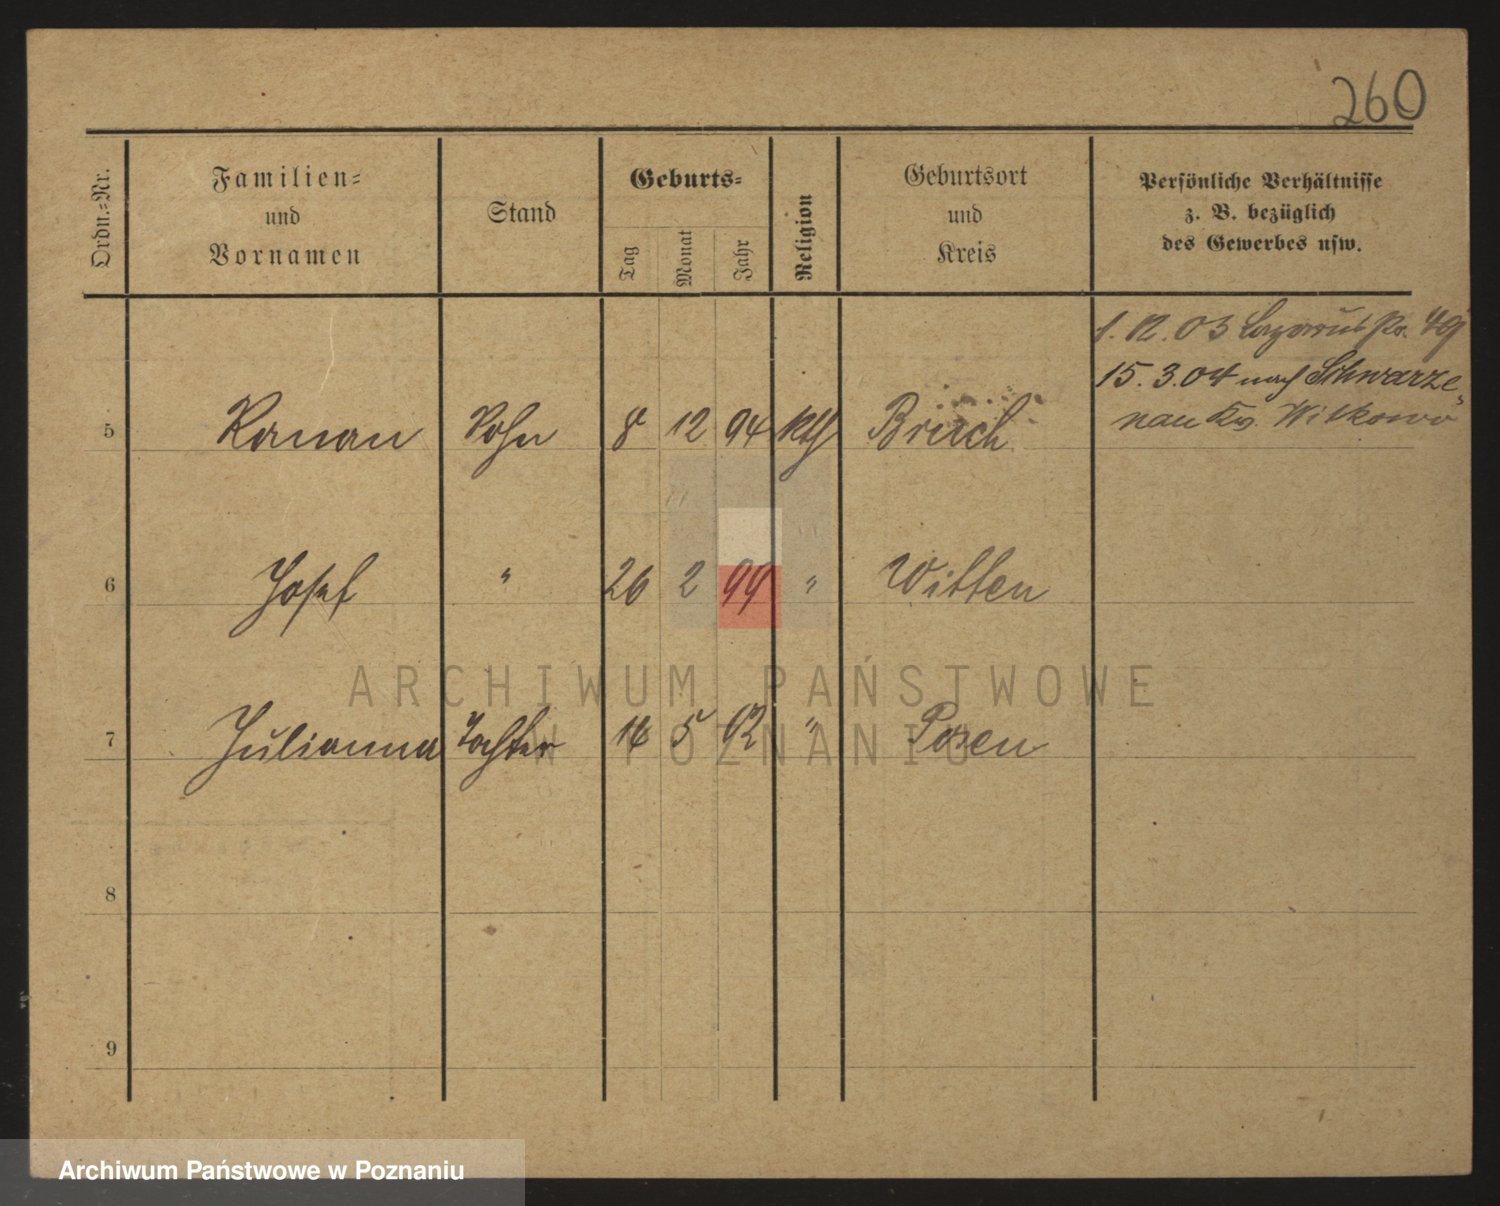 260
Ordn.-Nr.
Familien-
und
Vornamen
Stand
Geburts-
Tag
Monat
Jahr
Religion
Geburtsort
und
Kreis
Persönliche Verhältnisse
z. B. bezüglich
des Gewerbes usw.
1. 12. 03 Lazarus 49
15. 3. 04 nach Schwarze
nau Kr. Witkowo
5 Roman Sohn 8 12 94 kth
6 Josef " 26 2 99 " Witten
7 Julianna Tochter 5 92 " Posen
8
9
ARCHIWUM PAŃSTWOWE
W POZNANIU
Archiwum Państwowe w Poznaniu